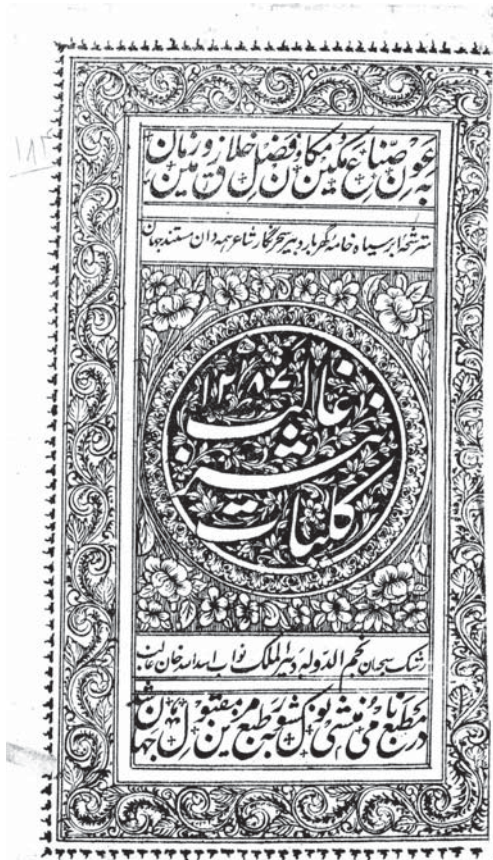 ۱۸۲
به عون صناع مکین و مکان و فضل خلاق زمین و زمان
مترشحهٔ ابر سیاه خامهٔ گهربار دبیر سحرنگار شاعر همه دان مستند جهان
۱۲۸۷
کلیات نثر غالب
رشک سحبان نجم الدوله دبیر الملک نواب اسد الله خان غالب
در مطبع نامی منشی نولکشور به طبع مزین مقبول جهان شد